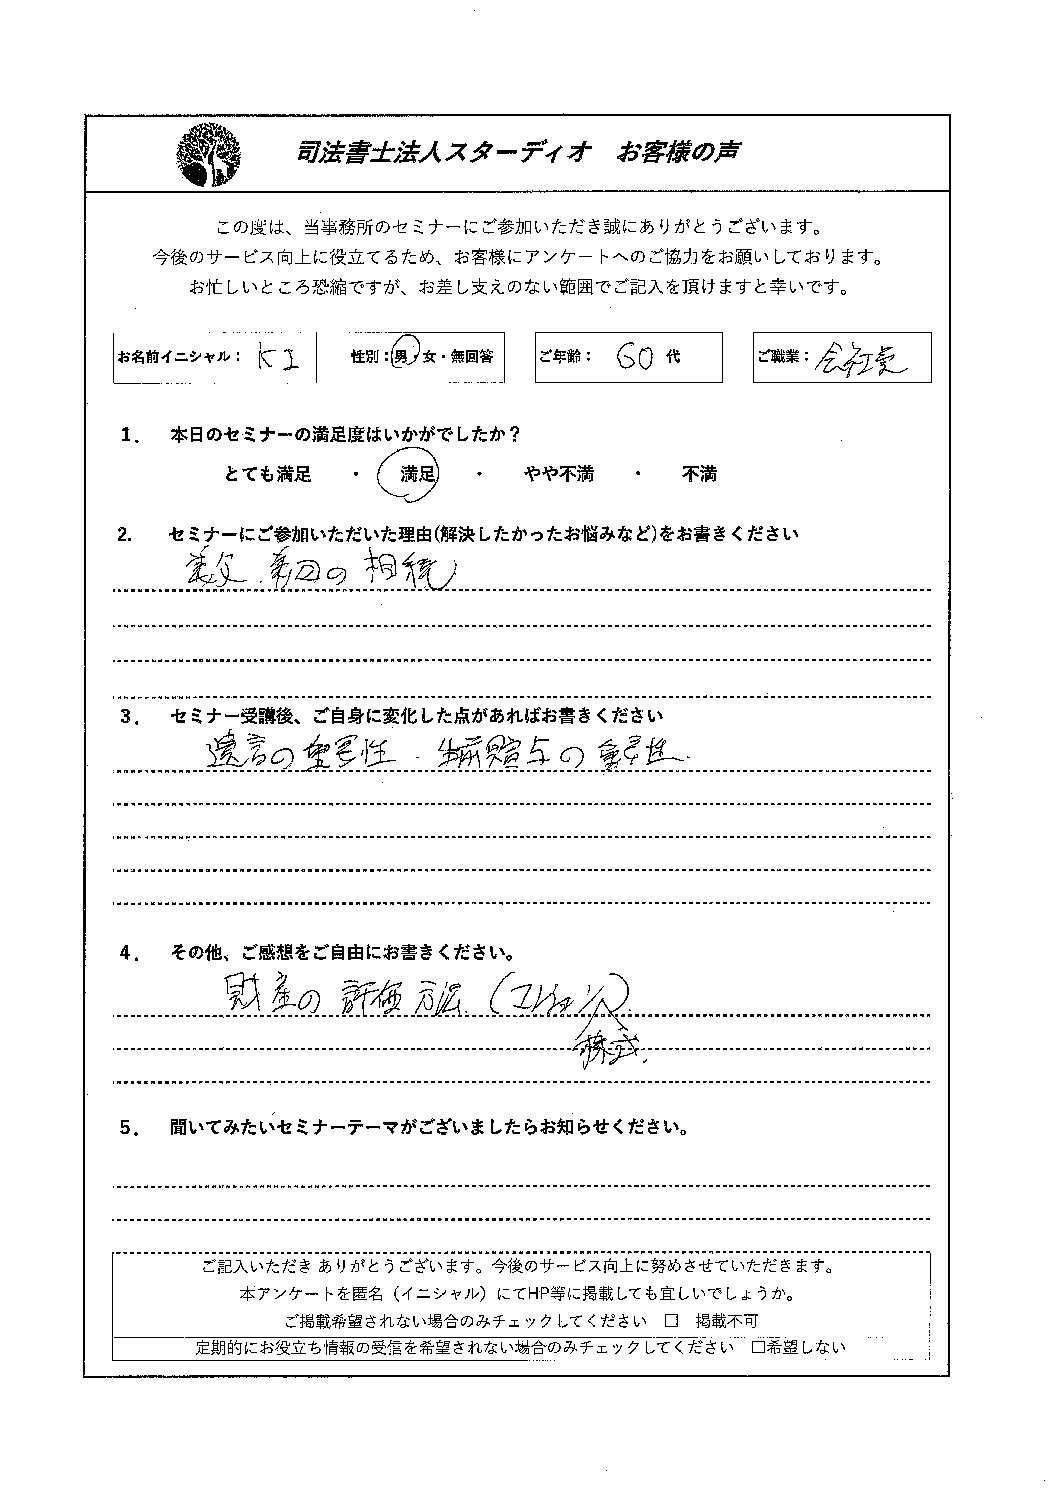 司法書士法人スターディオ　お客様の声
この度は、当事務所のセミナーにご参加いただき誠にありがとうございます。
今後のサービス向上に役立てるため、お客様にアンケートへのご協力をお願いしております。
お忙しいところ恐縮ですが、お差し支えのない範囲でご記入を頂けますと幸いです。
お名前イニシャル： KI 性別：男・女・無回答 ご年齢： 60 代 ご職業： 会社員
1. 本日のセミナーの満足度はいかがでしたか？
とても満足 ・ 満足 ・ やや不満 ・ 不満
2. セミナーにご参加いただいた理由(解決したかったお悩みなど)をお書きください
の相続
3. セミナー受講後、ご自身に変化した点があればお書きください
遺言の重要性 . 生前贈与の重要性
4. その他、ご感想をご自由にお書きください。
財産の評価方法 (マンション)
株式
5. 聞いてみたいセミナーテーマがございましたらお知らせください。
ご記入いただき ありがとうございます。今後のサービス向上に努めさせていただきます。
本アンケートを匿名（イニシャル）にてHP等に掲載しても宜しいでしょうか。
ご掲載希望されない場合のみチェックしてください □ 掲載不可
定期的にお役立ち情報の受信を希望されない場合のみチェックしてください □希望しない